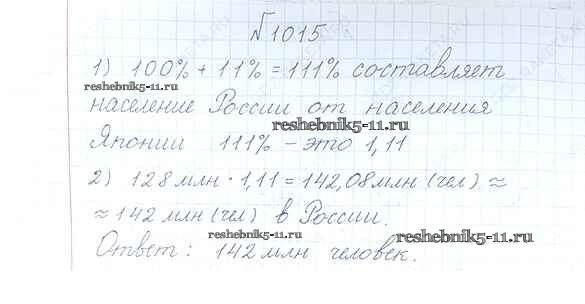 №1015
1) 100% + 11% = 111% составляет
reshebnik5-11.ru
население России от населения
reshebnik5-11.ru
Японии 111% – это 1,11
2) 128 млн · 1,11 = 142,08 млн (чел) ≈
≈ 142 млн (чел) в России.
reshebnik5-11.ru
reshebnik5-11.ru
Ответ: 142 млн человек.